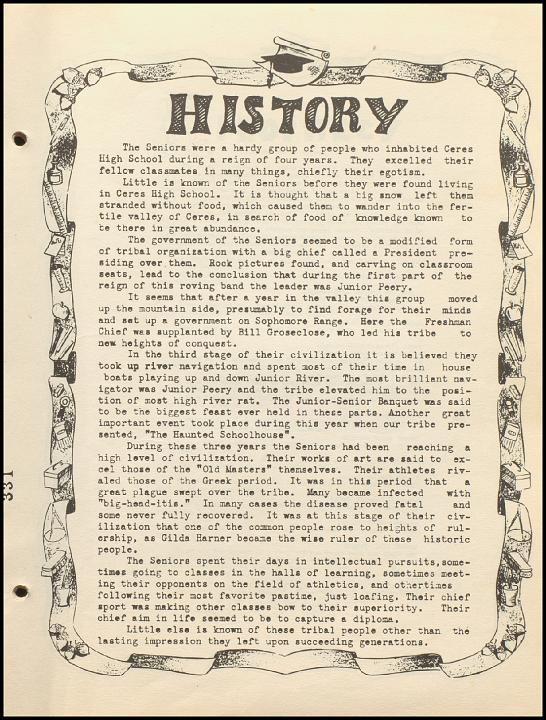 HISTORY
The Seniors were a hardy group of people who inhabited Ceres
High School during a reign of four years. They excelled their
fellow classmates in many things, chiefly their egotism.
Little is known of the Seniors before they were found living
in Ceres High School. It is thought that a big snow left them
stranded without food, which caused them to wander into the fer-
tile valley of Ceres, in search of food of knowledge known to
be there in great abundance.
The government of the Seniors seemed to be a modified form
of tribal organization with a big chief called a President pre-
siding over them. Rock pictures found, and carving on classroom
seats, lead to the conclusion that during the first part of the
reign of this roving band the leader was Junior Peery.
It seems that after a year in the valley this group moved
up the mountain side, presumably to find forage for their minds
and set up a government on Sophomore Range. Here the Freshman
Chief was supplanted by Bill Groseclose, who led his tribe to
new heights of conquest.
In the third stage of their civilization it is believed they
took up river navigation and spent most of their time in house
boats playing up and down Junior River. The most brilliant nav-
igator was Junior Peery and the tribe elevated him to the posi-
tion of most high river rat. The Junior-Senior Banquet was said
to be the biggest feast ever held in these parts. Another great
important event took place during this year when our tribe pre-
sented, "The Haunted Schoolhouse".
During these three years the Seniors had been reaching a
high level of civilization. Their works of art are said to ex-
cel those of the "Old Masters" themselves. Their athletes riv-
aled those of the Greek period. It was in this period that a
great plague swept over the tribe. Many became infected with
"big-head-itis." In many cases the disease proved fatal and
some never fully recovered. It was at this stage of their civ-
ilization that one of the common people rose to heights of rul-
ership, as Gilda Harner became the wise ruler of these historic
people.
The Seniors spent their days in intellectual pursuits,some-
times going to classes in the halls of learning, sometimes meet-
ing their opponents on the field of athletics, and othertimes
following their most favorite pastime, just loafing. Their chief
sport was making other classes bow to their superiority. Their
chief aim in life seemed to be to capture a diploma.
Little else is known of these tribal people other than the
lasting impression they left upon succeeding generations.
331